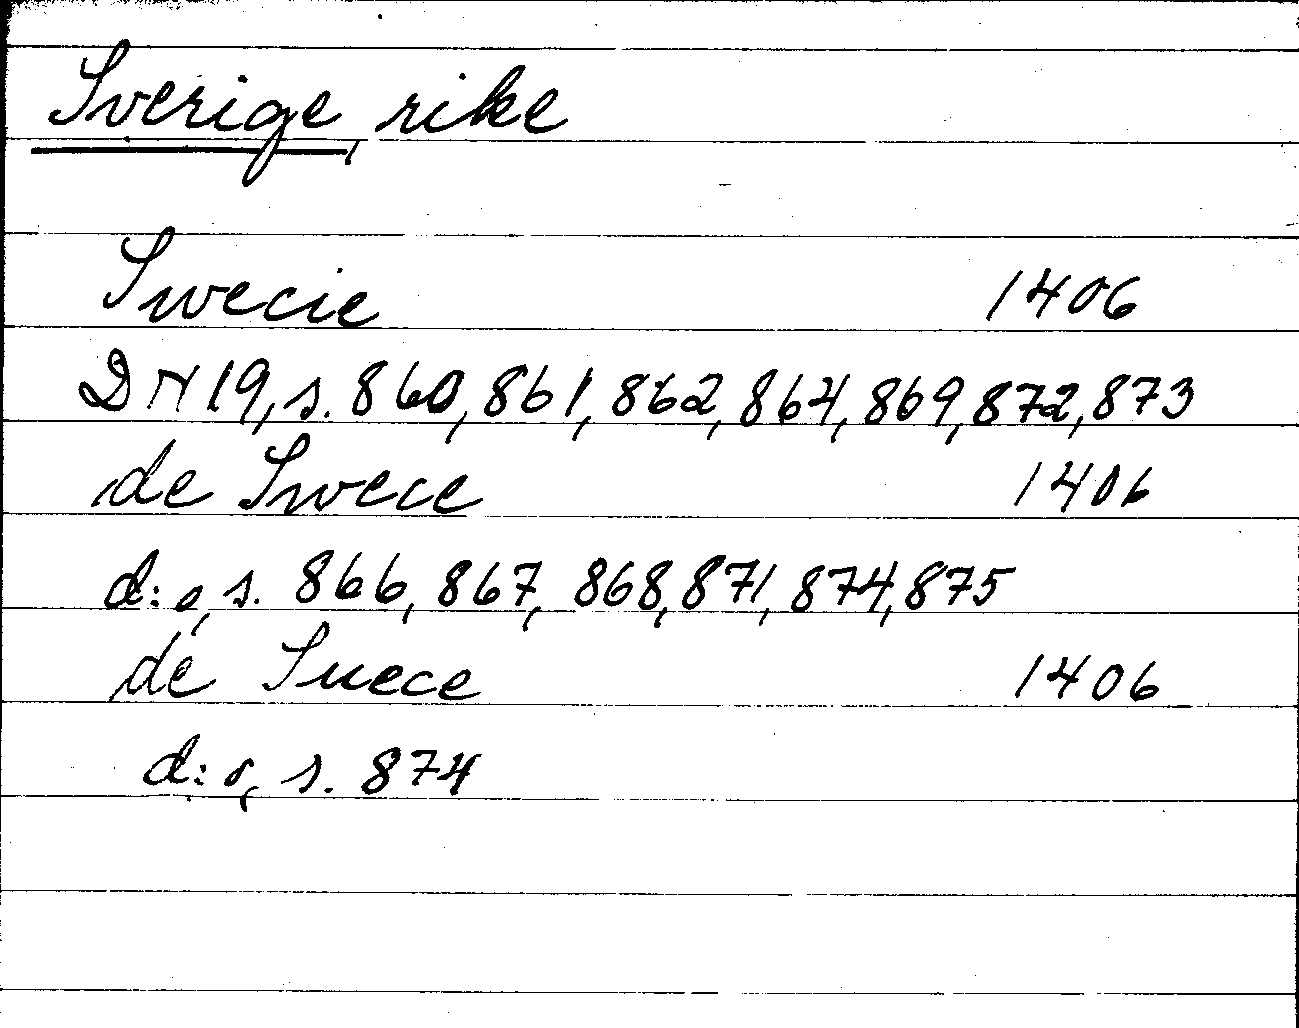 Sverige, rike
Swecie 1406
DN 19, s. 860, 861, 862, 864, 869, 872, 873
de Swece 1406
d:o, s. 866, 867, 868, 871, 874, 875
de Suece 1406
d:o, s. 874